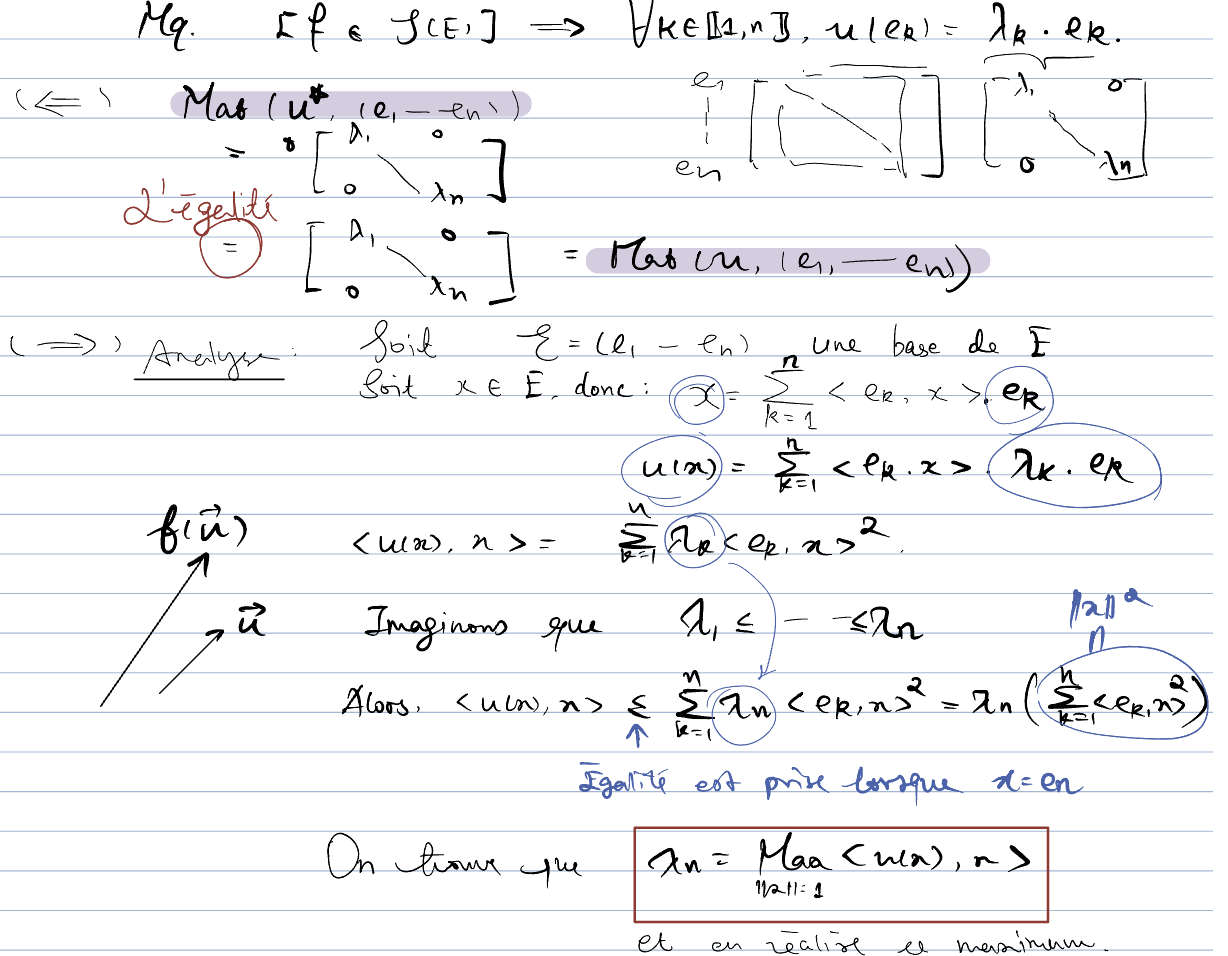 Mq. [f ∈ S(E)] ⟹ ∀k∈⟦1,n⟧, u(ek) = λk · ek.
(⟸) Mat(u*, (e1 — en))
= [λ1 0 0 λn]
e1 en [ ] [λ1 0 0 λn]
L'égalité
= [λ1 0 0 λn] = Mat(u, (e1, — en))
(⟹) Analyse : Soit ℰ = (e1 – en) une base de E
Soit x ∈ E, donc : x = ∑_{k=1}^{n} <ek, x>. ek
u(x) = ∑_{k=1}^{n} <ek . x> . λk . ek
f(u⃗) <u(x), x> = ∑_{k=1}^{n} λk <ek, x>².
u⃗ Imaginons que λ1 ≤ – – ≤ λn
||x||²
Alors, <u(x), x> ≤ ∑_{k=1}^{n} λn <ek, x>² = λn (∑_{k=1}^{n} <ek, x>²)
Égalité est prise lorsque x = en
On trouve que λn = Max_{||x||=1} <u(x), x>
et on réalise ce maximum.